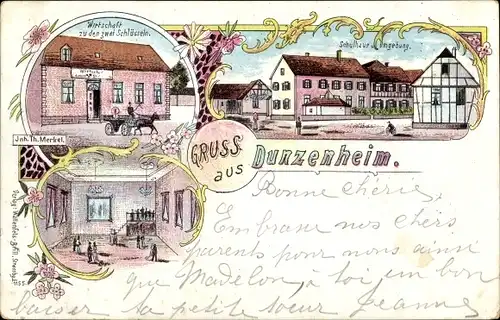 Wirtschaft
zu den zwei Schlüsseln.
Schulhaus u. Umgebung.
Jnh. Th. Merkel.
GRUSS
aus
Durzenheim.
Bonne chérie,
Embrasse nos chers
parents pour nous ainsi
que Madelon, à toi un bon
baiser ta petite soeur Jeanne